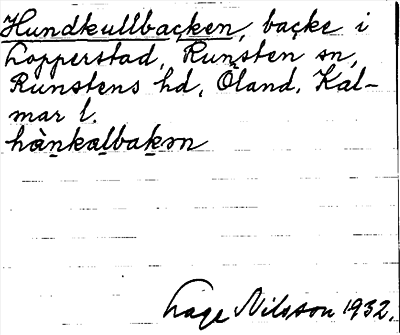 Hundkullbacken, backe i
Lopperstad, Runsten sn,
Runstens hd, Öland. Kal-
mar l.
hànkalbakən
Lage Nilsson 1932.